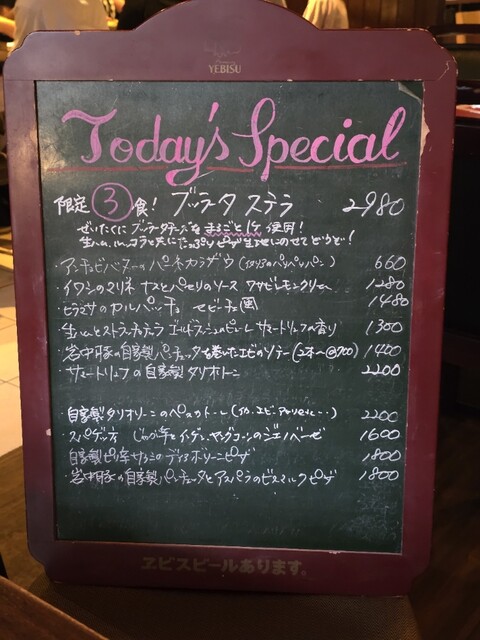 YEBISU
Today's Special
限定 ③ 食! ブッラータ ステラ 2980
ぜいたくに ブッラータチーズを まるごと1ケ 使用!
生ハム、ルッコラと共に たっぷり ピザ生地にのせて どうぞ!
・アンチョビバターの パーネカラザウ (イタリアのパリパリパン) 660
・イワシのマリネ ナスとパセリのソース ワサビレモンクリーム 1280
・ヒラマサのカルパッチョ セビーチェ風 1480
・生ハムとストラッチャテラ サマートリュフの香り 1300
・岩中豚の自家製パンチェッタを巻いたエビのソテー (2本〜@700) 1400
・サマートリュフの自家製タリオリーニ 2200
自家製タリオリーニのペスカトーレ (イカ、エビ、アサリetc…) 2200
・スパゲッティ じゃが芋とインゲン、ヤングコーンのジェノベーゼ 1600
自家製ピリ辛サラミのディアボラピザ 1800
・岩中豚の自家製パンチェッタとアスパラのビスマルクピザ 1800
ヱビスビールあります。